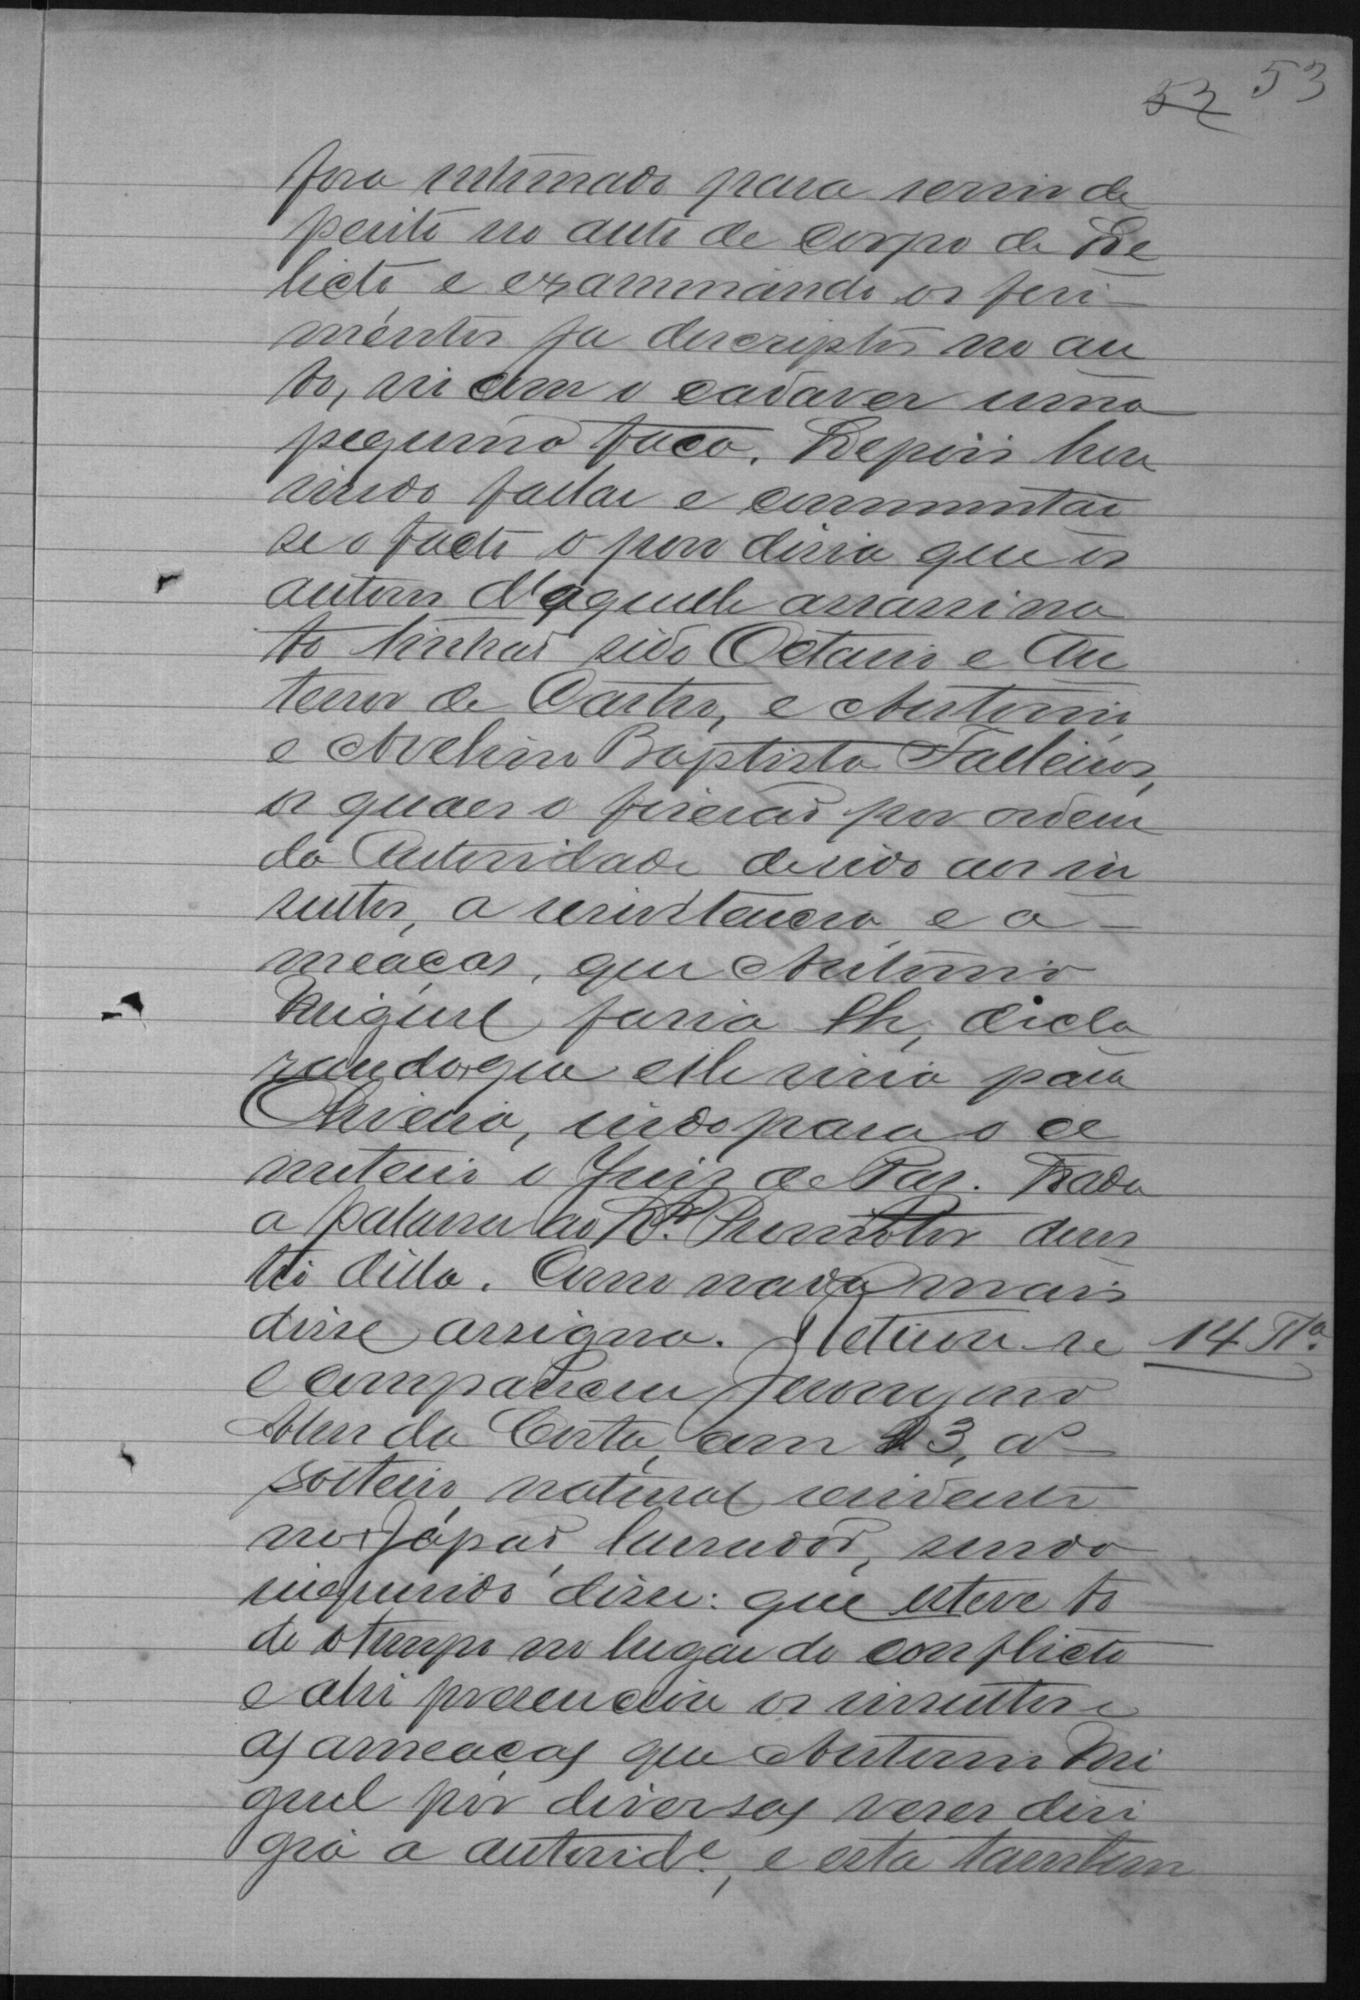 53 53
fora intimado para servir de
perito no auto de corpo de De
licto e examinando os feri-
mentos ja descriptos no au
to, vi com o cadaver uma
pequena faca. Depois hou
vindo fallar e commentar
se o facto o povo disia que os
autores d'aquelle assassina
to tinhaõ sido Octavio e An
tenor de Castro, e Antonio
e Avelino Baptista Falleiros,
os quaes o fiseraõ por ordem
da Autoridade devido aos in
sultos, a resistencia e a-
meaças, que Antonio
Miguel fasia lhe, decla
rando que elle viria para
, vindo para o ce
miterio o Juiz de Paz. Dada
a palavra ao Dr. Promotor deses
tio della. Como nada mais
disse assigna. Retirou se
14 Tª.
e compareceu Jeronymo
Alves da Costa, com 23, aˢ
solteiro, natural residente
no Japaõ, lavrador, sendo
inquirido disse: que esteve to
do o tempo no lugar do conflicto
e ahi presenciou os insultos e
as ameaças que Antonio Mi
guel por diversas veses diri
gia a autoridᵉ., e esta tambem